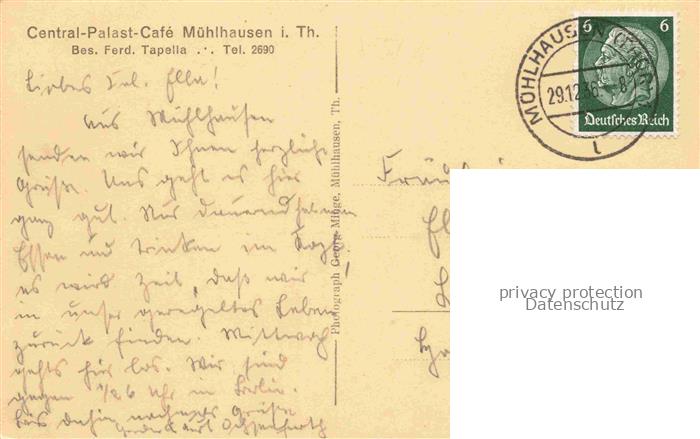 Central-Palast-Café Mühlhausen i. Th.
Bes. Ferd. Tapella .·. Tel. 2690
Liebes Frl. Ella!
Aus Mühlhausen
senden wir Ihnen herzliche
Grüße. Uns geht es hier
ganz gut. Nur dauernd haben wir
Essen und trinken im Kopf,
es wird Zeit, daß wir
in unser geregeltes Leben
zurück finden. Mittwoch
gehts hier los. Wir sind
gegen 1/2 6 Uhr in Berlin.
Bis dahin nochmals Grüße
Photograph Georg Minge, Mühlhausen, Th.
MÜHLHAUSEN (THÜR)
29.12.36
6 6
Deutsches Reich
Fräulein
privacy protection
Datenschutz